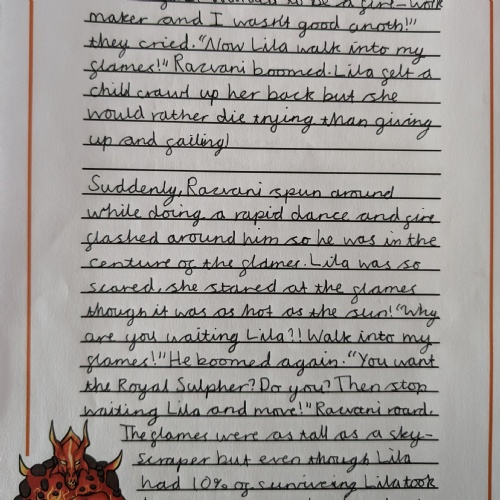 wanted to be a fire-work
maker and I wasn't good anoth!"
they cried. "Now Lila walk into my
flames!" Razvani boomed. Lila felt a
child crawl up her back but she
would rather die trying than giving
up and failing!
Suddenly, Razvani spun around
while doing a rapid dance and fire
flashed around him so he was in the
centure of the flames. Lila was so
scared, she stared at the flames
though it was as hot as the sun! "Why
are you waiting Lila?! Walk into my
flames!" He boomed again. "You want
the Royal Sulpher? Do you? Then stop
waiting Lila and move!" Razvani roard.
The flames were as tall as a sky-
scraper but even though Lila
had 10% of surviveing Lila took